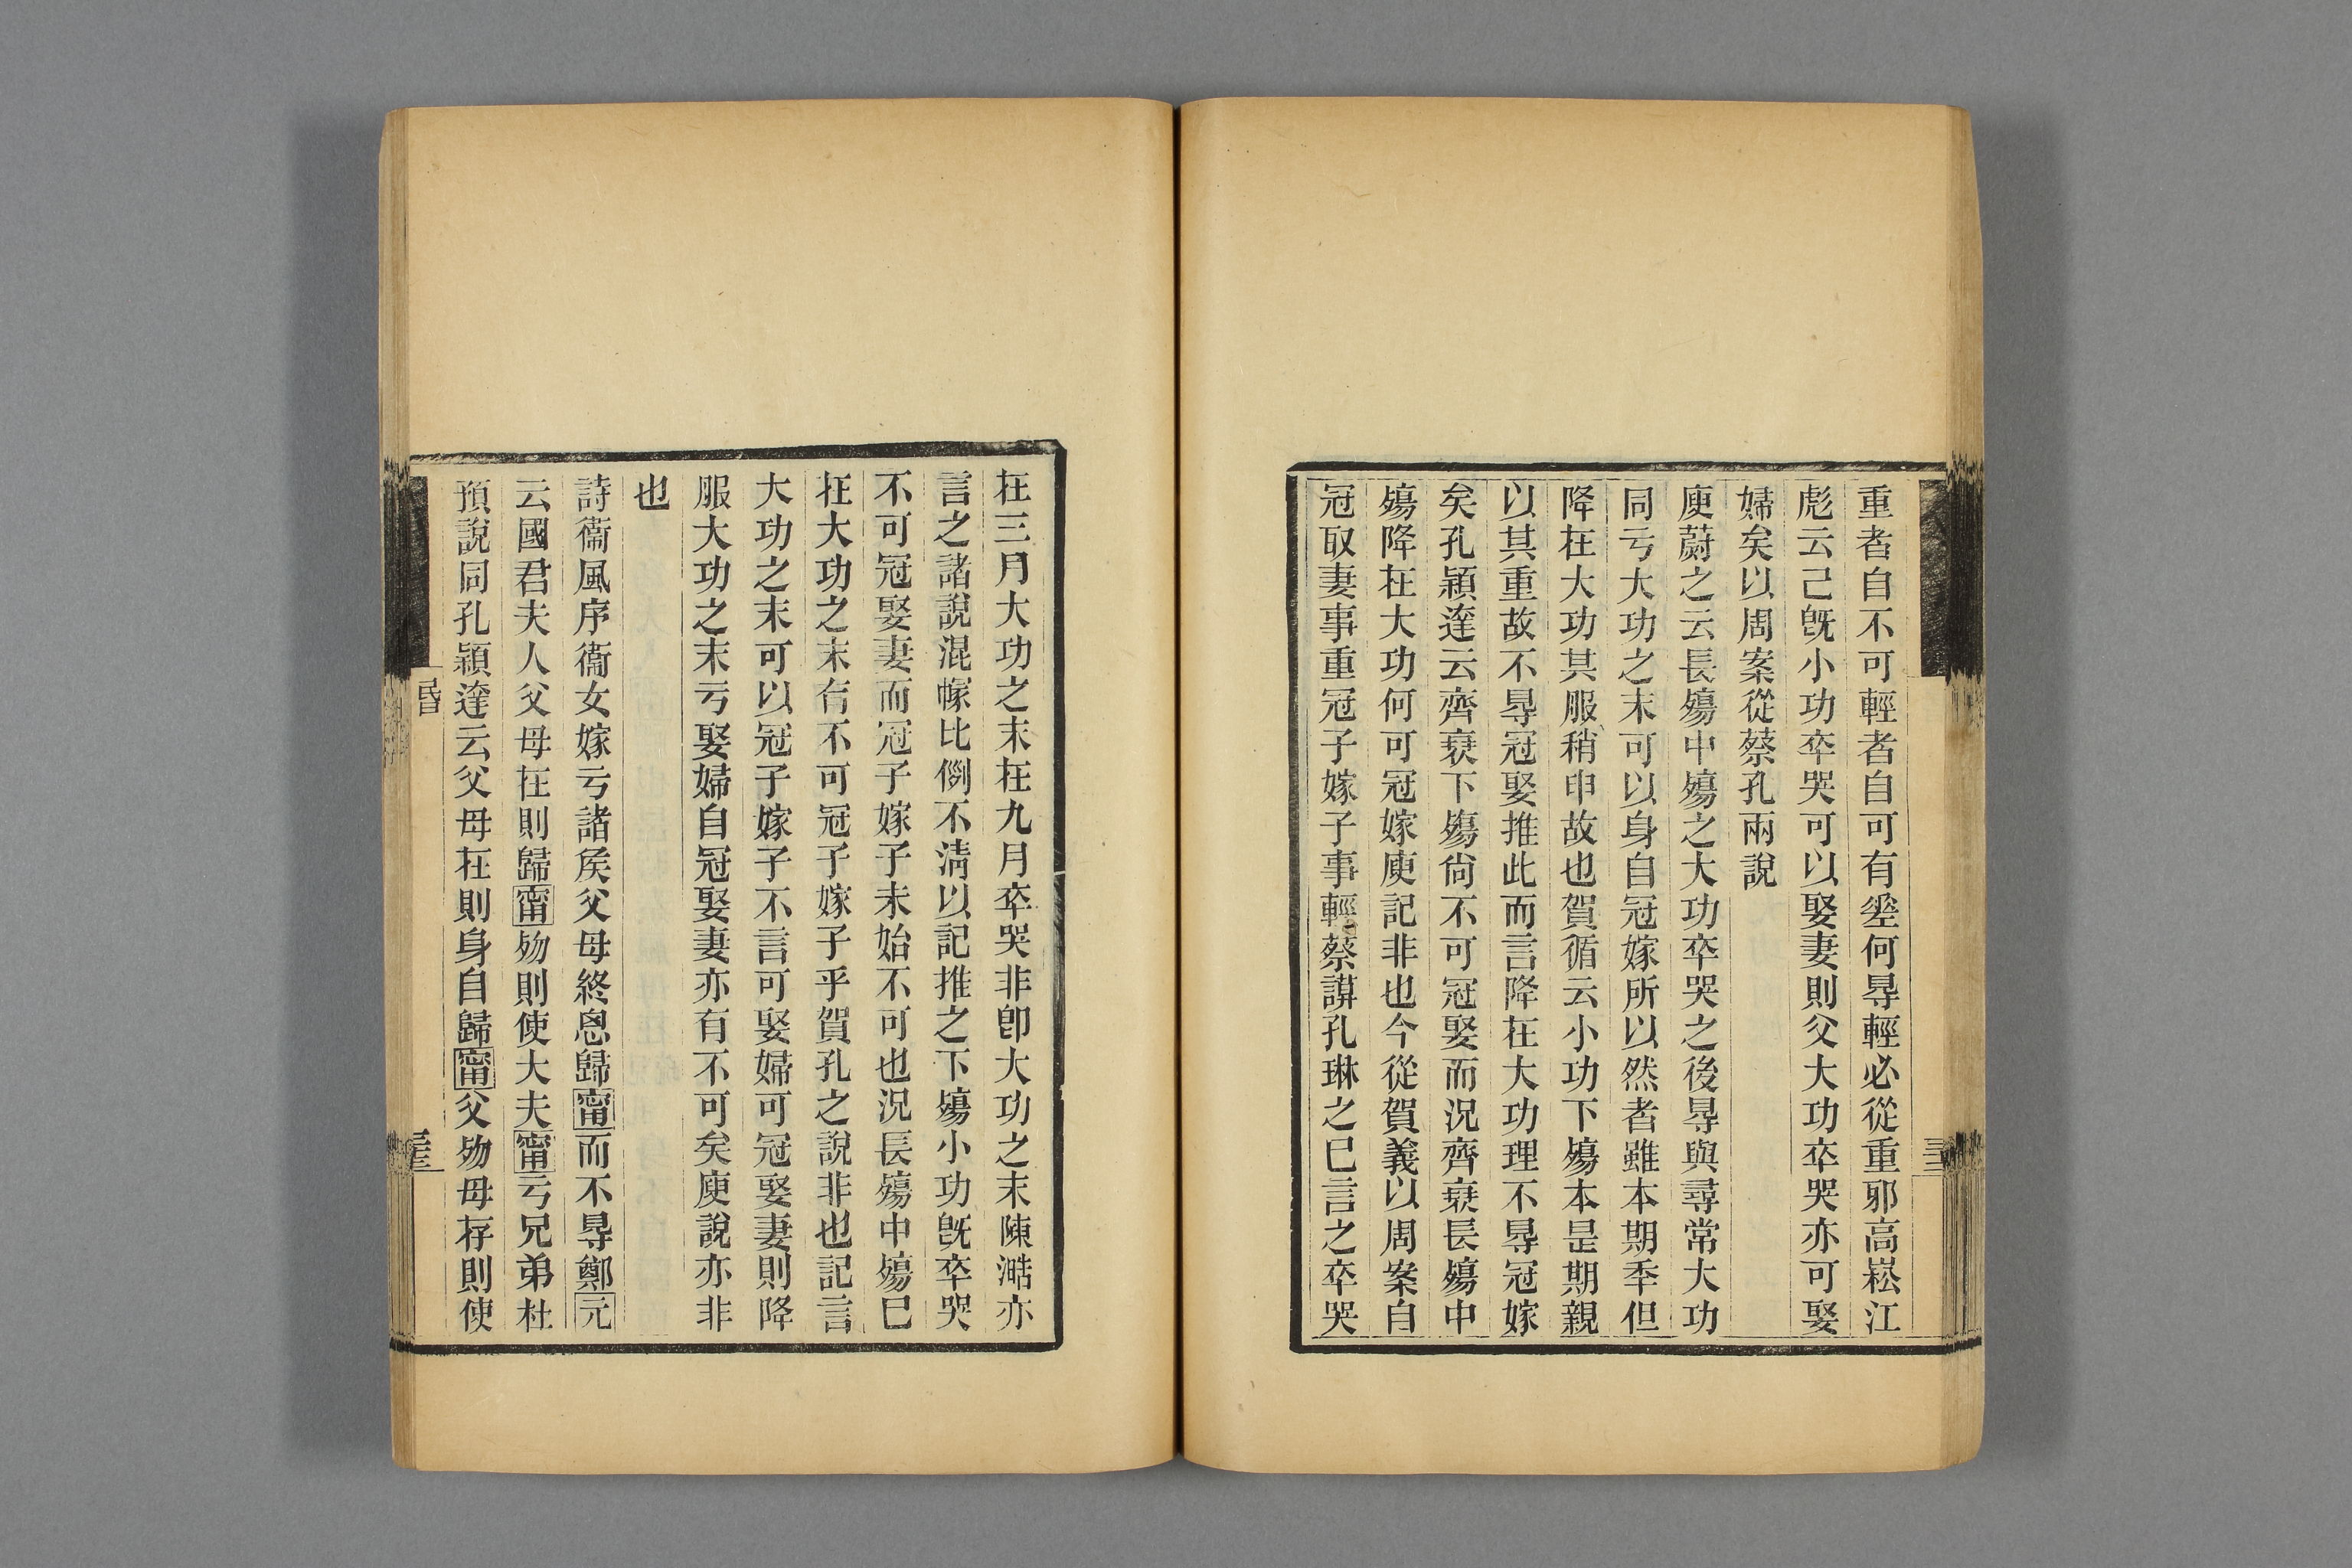 重者自不可輕者自可有㘴何㝵輕必從重邪高崧江
彪云己旣小功卒哭可以娶妻則父大功卒哭亦可娶
婦矣以周案從蔡孔兩說
庾蔚之云長殤中殤之大功卒哭之後㝵與尋常大功
同亏大功之末可以身自冠嫁所以然者雖本期秊但
降在大功其服稍申故也賀循云小功下殤本是期親
以其重故不㝵冠娶推此而言降在大功理不㝵冠嫁
矣孔穎達云齊衰下殤尙不可冠娶而況齊衰長殤中
殤降在大功何可冠嫁庾記非也今從賀義以周案自
冠取妻事重冠子嫁子事輕蔡謨孔琳之巳言之卒哭
在三月大功之末在九月卒哭非卽大功之末陳澔亦
言之諸說混幏比㑡不淸以記推之下殤小功旣卒哭
不可冠娶妻而冠子嫁子未始不可也況長殤中殤巳
在大功之末有不可冠子嫁子乎賀孔之說非也記言
大功之末可以冠子嫁子不言可娶婦可冠娶妻則降
服大功之末亏娶婦自冠娶妻亦有不可矣庾說亦非
也
詩衞風序衞女嫁亏諸矦父母終恖歸甯而不㝵鄭元
云國君夫人父母在則歸甯歾則使大夫甯亏兄弟杜
預說同孔穎達云父母在則身自歸甯父歾母存則使
昏